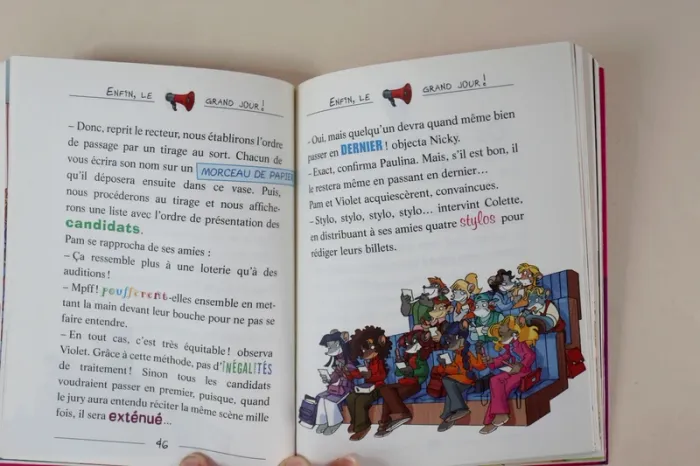 ENFIN, LE GRAND JOUR !
– Donc, reprit le recteur, nous établirons l'ordre
de passage par un tirage au sort. Chacun de
vous écrira son nom sur un MORCEAU DE PAPIER
qu'il déposera ensuite dans ce vase. Puis,
nous procéderons au tirage et nous affiche-
rons une liste avec l'ordre de présentation des
candidats.
Pam se rapprocha de ses amies :
– Ça ressemble plus à une loterie qu'à des
auditions !
– Mpff ! pouffèrent-elles ensemble en met-
tant la main devant leur bouche pour ne pas se
faire entendre.
– En tout cas, c'est très équitable ! observa
Violet. Grâce à cette méthode, pas d'INÉGALITÉS
de traitement ! Sinon tous les candidats
voudraient passer en premier, puisque, quand
le jury aura entendu réciter la même scène mille
fois, il sera exténué...
46
ENFIN, LE GRAND JOUR !
– Oui, mais quelqu'un devra quand même bien
passer en DERNIER ! objecta Nicky.
– Exact, confirma Paulina. Mais, s'il est bon, il
le restera même en passant en dernier...
Pam et Violet acquiescèrent, convaincues.
– Stylo, stylo, stylo, stylo... intervint Colette,
en distribuant à ses amies quatre stylos pour
rédiger leurs billets.